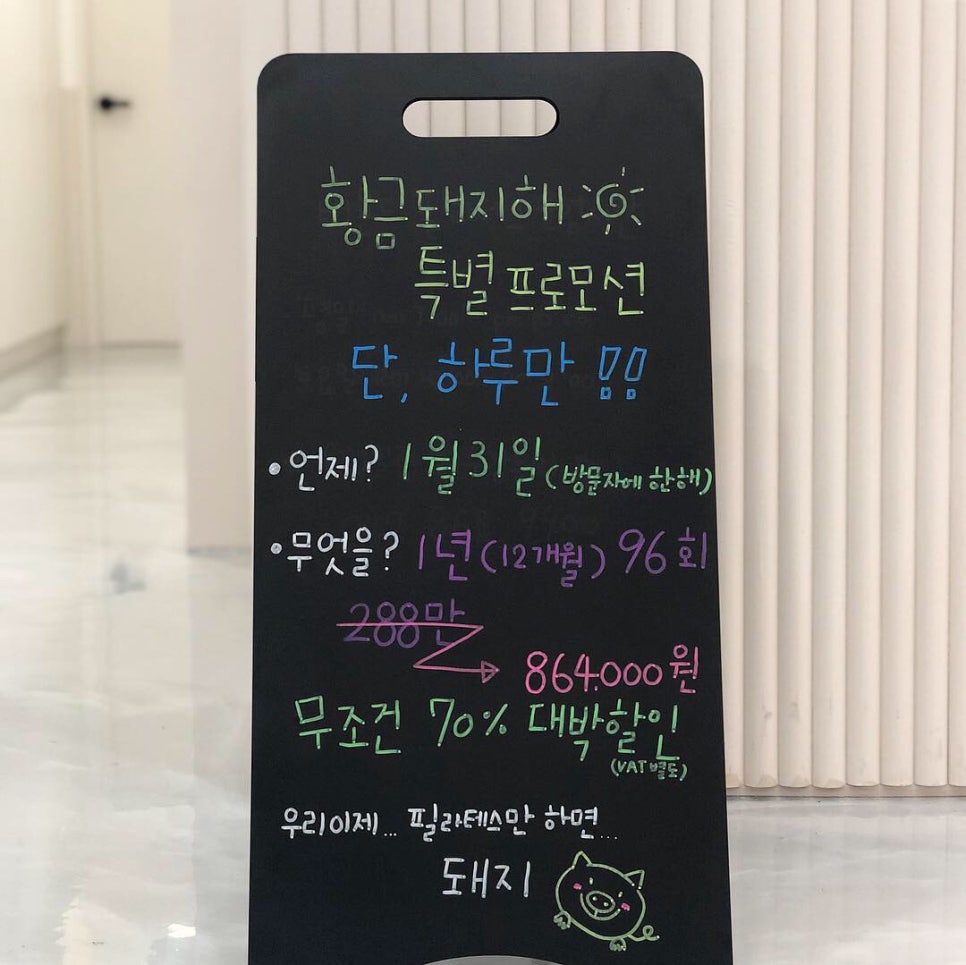 황금돼지해
특별 프로모션
단, 하루만 !!
• 언제? 1월 31일 (방문자에 한해)
• 무엇을? 1년 (12개월) 96회
288만
864.000원
무조건 70% 대박할인
(VAT 별도)
우리이제... 필라테스만 하면...
돼지